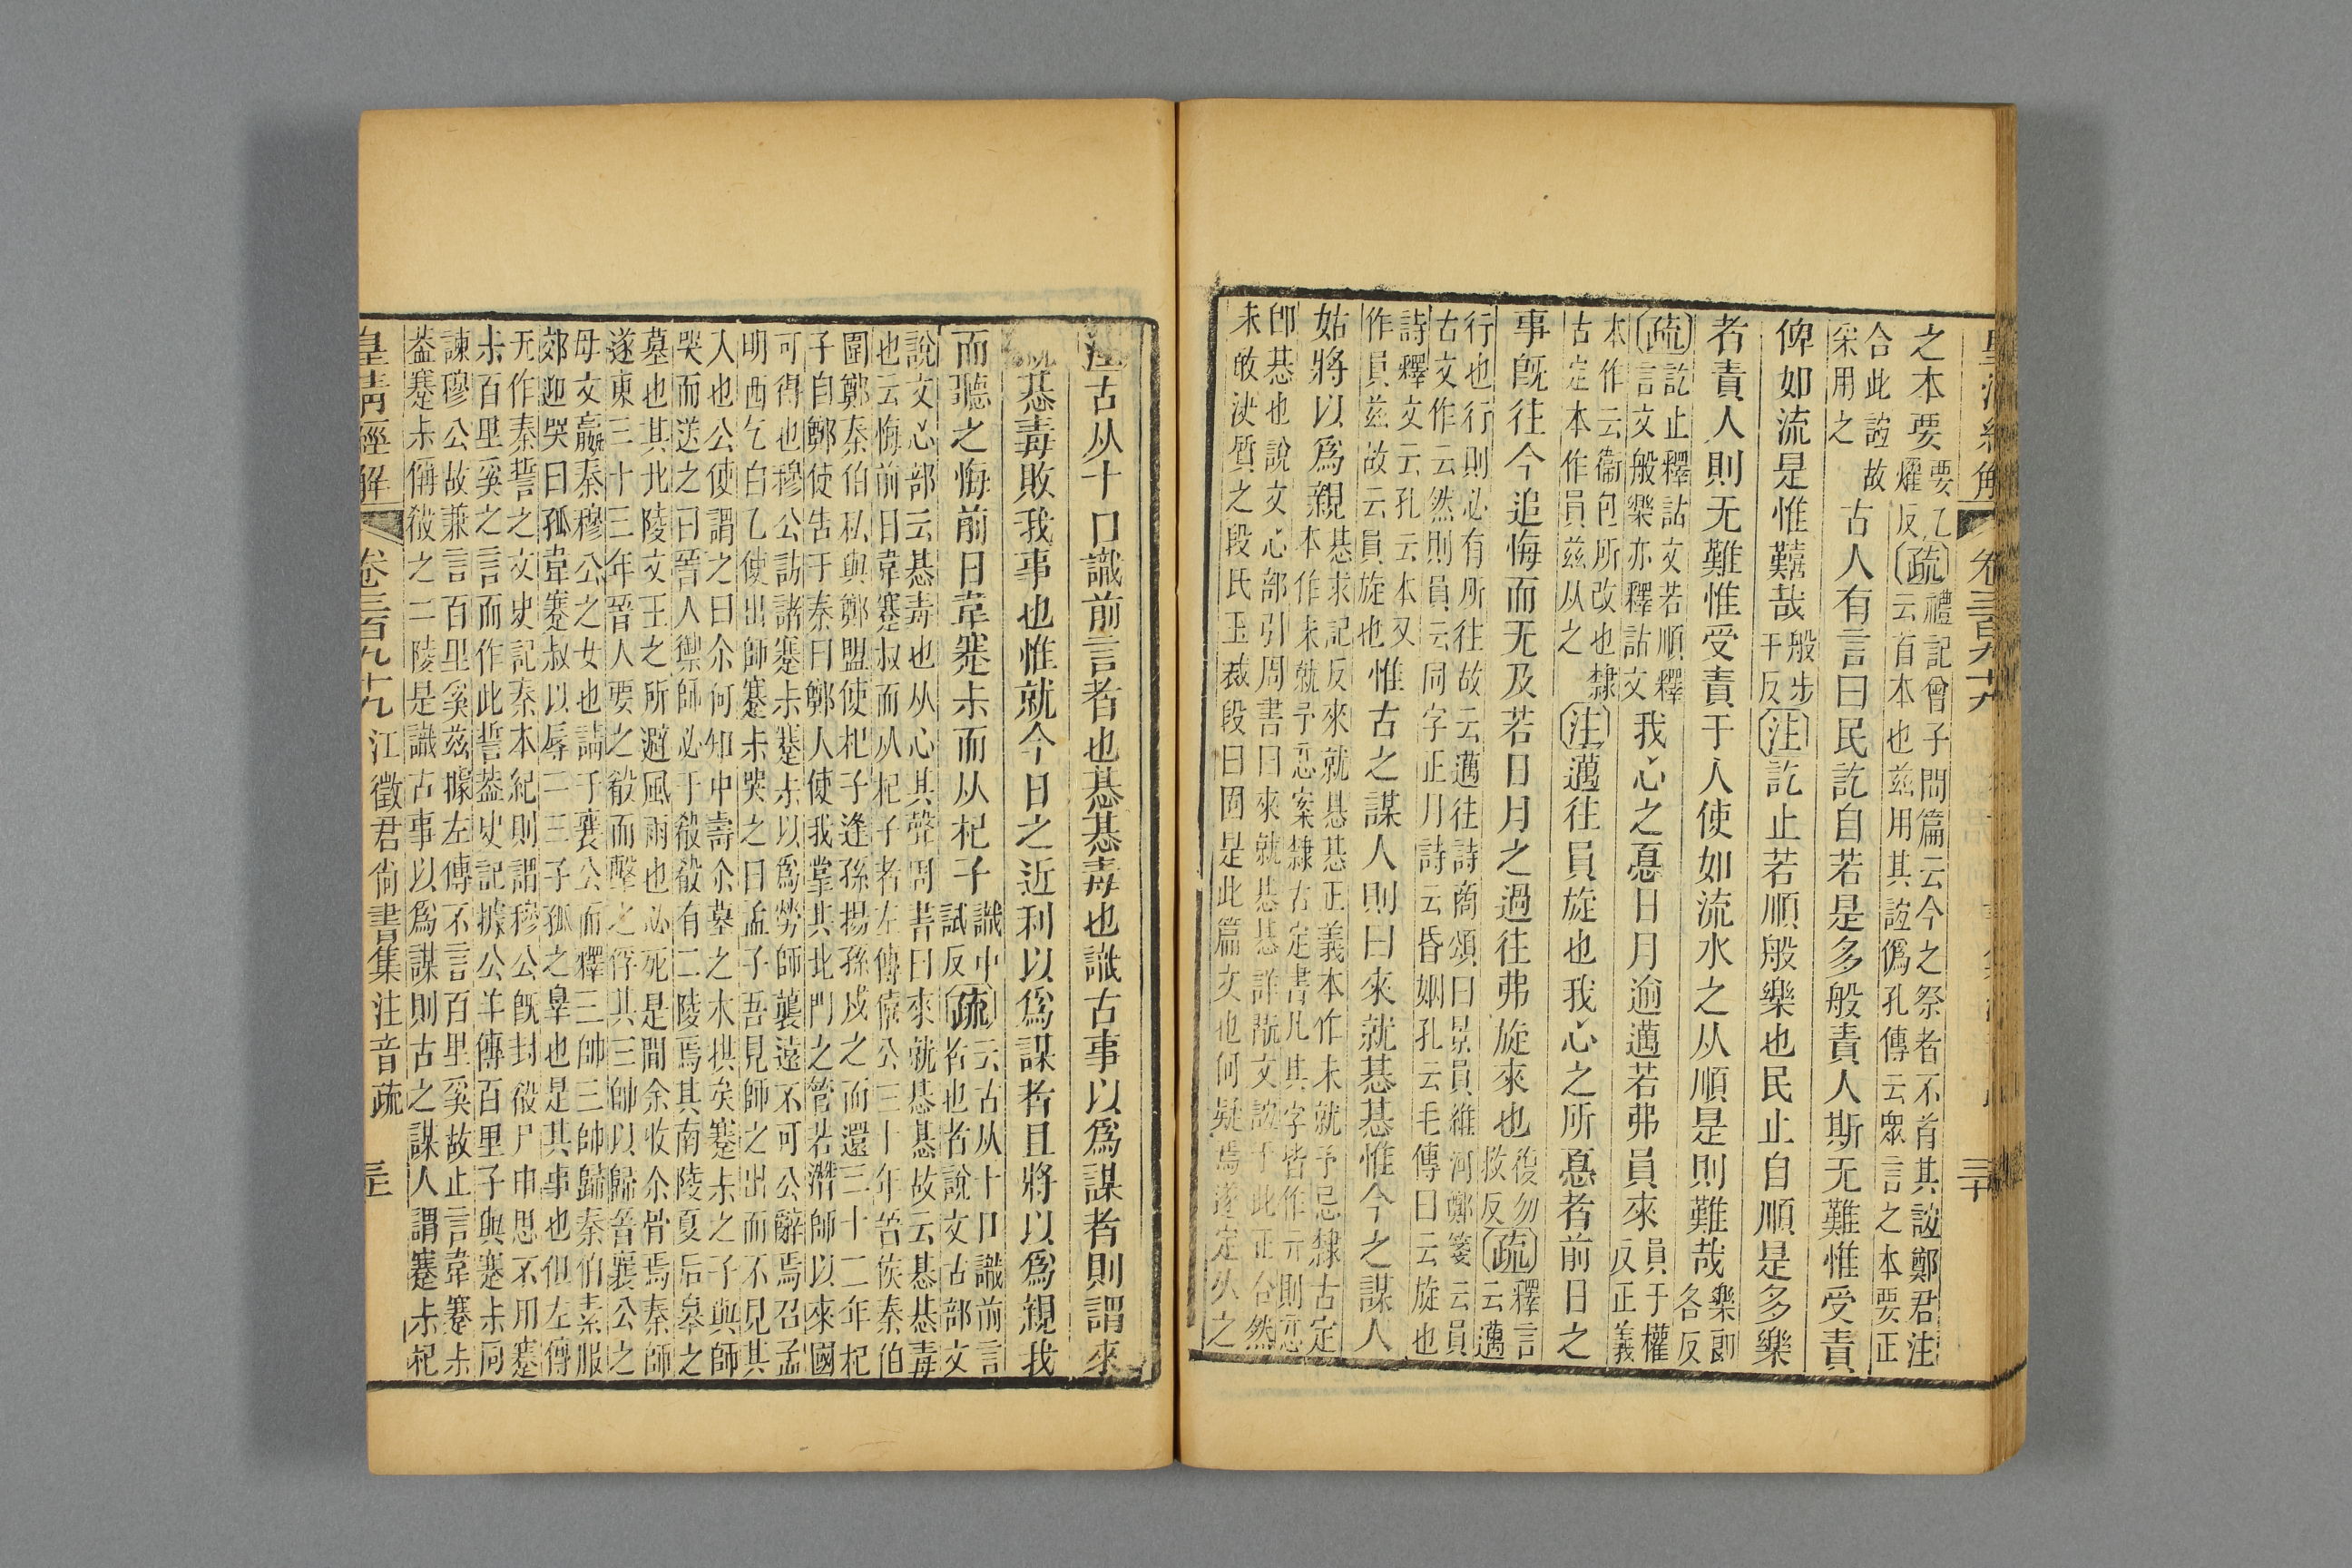 皇清經解 卷三百九十九 三十
之本要要乙
燿反疏禮記曾子問篇云今之祭者不首其誼鄭君注
云首本也兹用其誼僞孔傳云眾言之本要正
合此誼故
采用之
古人有言曰民訖自若是多般責人斯无難惟受責
俾如流是惟囏哉般步
干反注訖止若順般樂也民止自順是多樂
者責人則无難惟受責于人使如流水之从順是則難哉樂卽
各反
疏訖止釋詁文若順釋
言文般樂亦釋詁文我心之憂日月逾邁若弗員來員于權
反正義
本作云衞包所改也隸
古定本作員兹从之注邁往員旋也我心之所憂者前日之
事旣往今追悔而无及若日月之過往弗旋來也復勿
救反疏釋言
云邁
行也行則必有所往故云邁往詩商頌曰景員維河鄭箋云員
古文作云然則員云同字正月詩云昏姻孔云毛傳曰云旋也
詩釋文云孔云本又
作員兹故云員旋也惟古之謀人則曰來就惎惎惟今之謀人
姑將以爲親惎求記反來就惎惎正義本作未就予忌隸古定
本作未就予忌案隸古定書凡其字皆作亓則忌
卽惎也說文心部引周書曰來就惎惎詳說文誼于此正合然
未敢決質之段氏玉裁段曰固是此篇文也何疑焉遂定从之
注古从十口識前言者也惎惎毒也識古事以爲謀者則謂來
就惎毒敗我事也惟就今日之近利以爲謀者且將以爲親我
而聽之悔前日韋蹇尗而从杞子識中
試反疏云古从十口識前言
者也者說文古部文
說文心部云惎毒也从心其聲周書曰來就惎惎故云惎惎毒
也云悔前日韋蹇叔而从杞子者左傳僖公三十年晉侯秦伯
圍鄭秦伯私與鄭盟使杞子逢孫揚孫戍之而還三十二年杞
子自鄭使告于秦曰鄭人使我掌其北門之管若潛師以來國
可得也穆公訪諸蹇尗蹇尗以爲勞師襲遠不可公辭焉召孟
明西乞白乙使出師蹇尗哭之曰孟子吾見師之出而不見其
入也公使謂之曰尒何知中壽尒墓之木拱矣蹇尗之子與師
哭而送之曰晉人禦師必于殽殽有二陵焉其南陵夏后皋之
墓也其北陵文王之所避風雨也必死是閒余收尒骨焉秦師
遂東三十三年晉人要之殽而擊之俘其三帥以歸晉襄公之
母文嬴秦穆公之女也請于襄公而釋三帥三帥歸秦伯素服
郊迎哭曰孤韋蹇叔以辱二三子孤之辠也是其事也但左傳
无作秦誓之文史記秦本紀則謂穆公旣封殽尸申思不用蹇
尗百里奚之言而作此誓葢史記據公羊傳百里子與蹇尗同
諫穆公故兼言百里奚兹據左傳不言百里奚故止言韋蹇尗
葢蹇尗偁殽之二陵是識古事以爲謀則古之謀人謂蹇尗杞
皇清經解 卷三百九十九江徵君尙書集注音疏